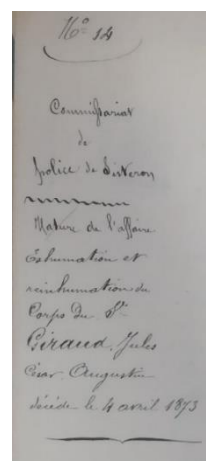 N° 14
Commissariat
de
police de Sisteron
Nature de l'affaire
Exhumation et
reinhumation du
Corps du Sr
Giraud, Jules
César, Augustin
décédé le 4 avril 1873